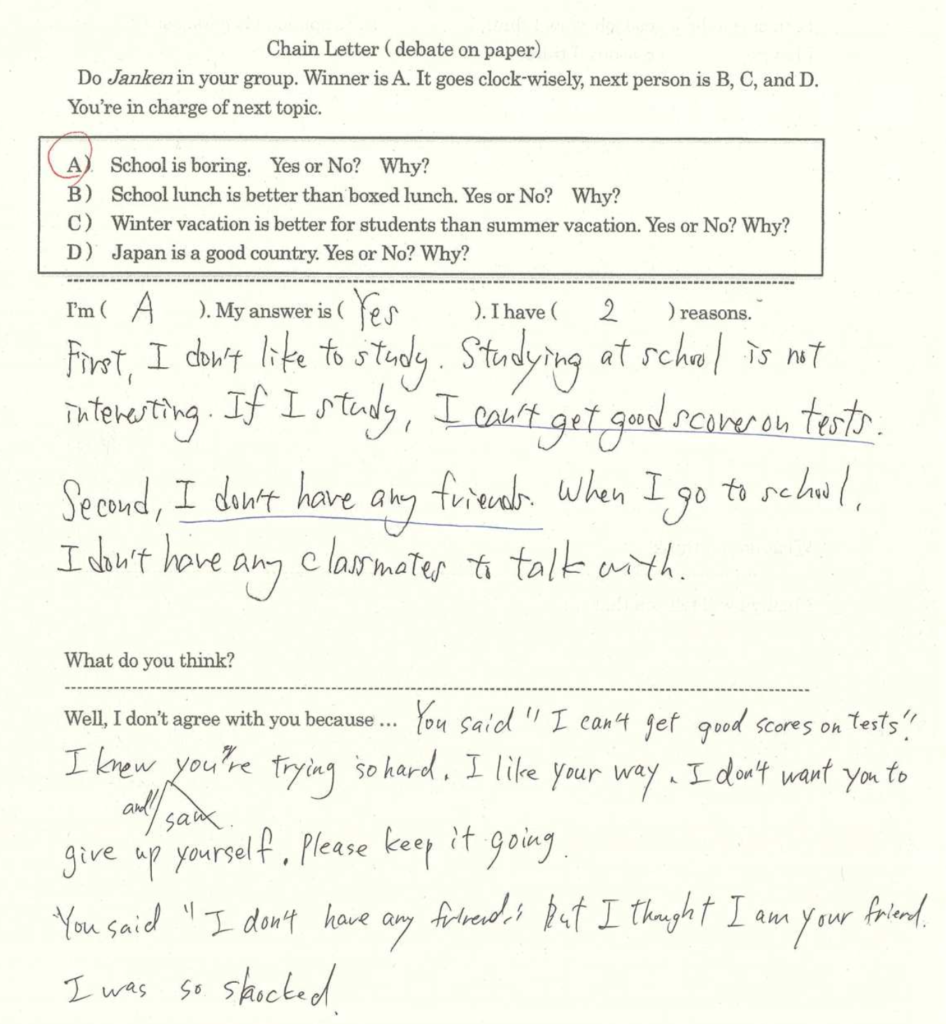 Chain Letter ( debate on paper)
Do Janken in your group. Winner is A. It goes clock-wisely, next person is B, C, and D.
You're in charge of next topic.
A) School is boring. Yes or No? Why?
B) School lunch is better than boxed lunch. Yes or No? Why?
C) Winter vacation is better for students than summer vacation. Yes or No? Why?
D) Japan is a good country. Yes or No? Why?
I'm ( A ). My answer is ( Yes ). I have ( 2 ) reasons.
First, I don't like to study. Studying at school is not
interesting. If I study, I can't get good scores on tests.
Second, I don't have any friends. When I go to school,
I don't have any classmates to talk with.
What do you think?
Well, I don't agree with you because ... You said "I can't get good scores on tests".
I knew you're trying so hard. I like your way. I don't want you to
and saw
give up yourself. Please keep it going.
You said "I don't have any friends" but I thought I am your friend.
I was so shocked.